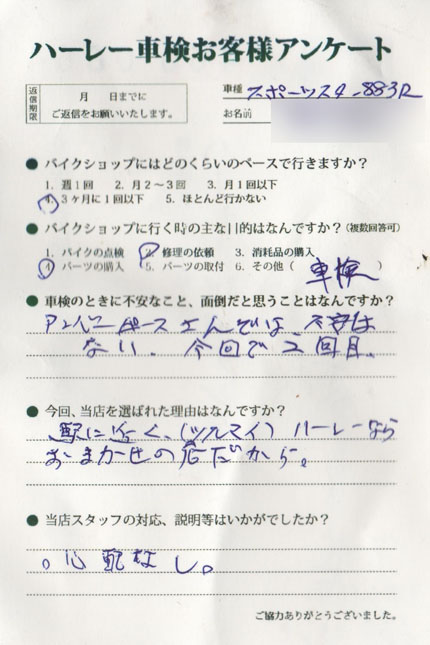 ハーレー車検お客様アンケート
返信期限
月　　日までに
ご返信をお願いいたします。
車種 スポーツスター883R
お名前
● バイクショップにはどのくらいのペースで行きますか？
1. 週1回　2. 月2〜3回　3. 月1回以下
4. 3ヶ月に1回以下　5. ほとんど行かない
● バイクショップに行く時の主な目的はなんですか？（複数回答可）
1. バイクの点検　2. 修理の依頼　3. 消耗品の購入
4. パーツの購入　5. パーツの取付　6. その他（ 車検
● 車検のときに不安なこと、面倒だと思うことはなんですか？
アンバーピースさんでは、不安は
ない。今回で2回目。
● 今回、当店を選ばれた理由はなんですか？
駅に近く、 ハーレーなら
おまかせの店だから。
● 当店スタッフの対応、説明等はいかがでしたか？
。心配なし。
ご協力ありがとうございました。